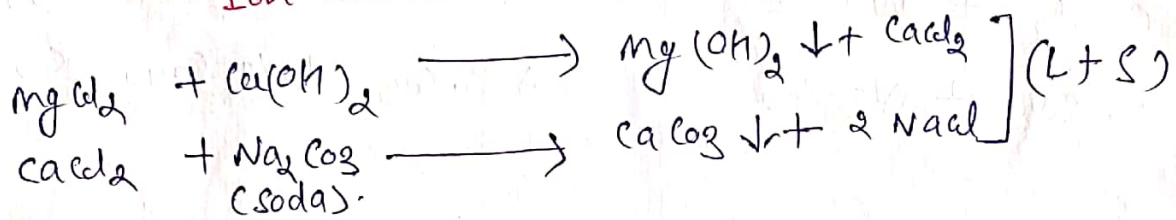 MgCl₂ + Ca(OH)₂ ⟶ Mg(OH)₂ ↓ + CaCl₂ ] (L + S)
CaCl₂ + Na₂CO₃ ⟶ CaCO₃ ↓ + 2 NaCl
(soda).